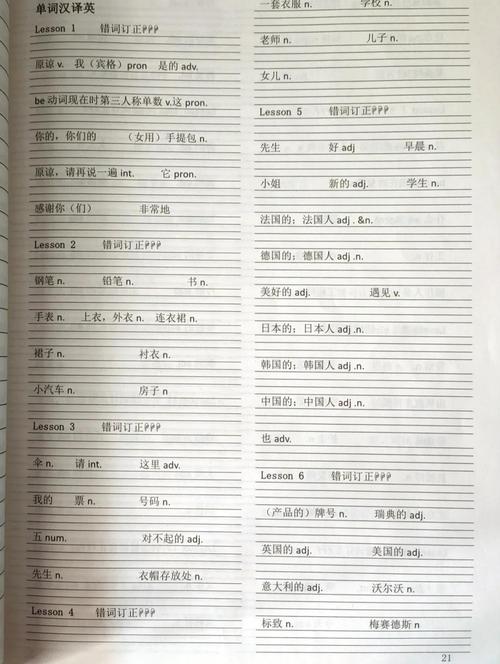 单词汉译英
Lesson 1 错词订正
原谅 v. 我（宾格）pron 是的 adv.
be 动词现在时第三人称单数 v.这 pron.
你的，你们的 （女用）手提包 n.
原谅，请再说一遍 int. 它 pron.
感谢你（们） 非常地
Lesson 2 错词订正
钢笔 n. 铅笔 n. 书 n.
手表 n. 上衣，外衣 n. 连衣裙 n.
裙子 n. 衬衣 n.
小汽车 n. 房子 n
Lesson 3 错词订正
伞 n. 请 int. 这里 adv.
我的 票 n. 号码 n.
五 num. 对不起的 adj.
先生 n. 衣帽存放处 n.
Lesson 4 错词订正
一套衣服 n. 学校 n.
老师 n. 儿子 n.
女儿 n.
Lesson 5 错词订正
先生 好 adj 早晨 n.
小姐 新的 adj. 学生 n.
法国的；法国人 adj . &n.
德国的；德国人 adj .n.
美好的 adj. 遇见 v.
日本的；日本人 adj .n.
韩国的；韩国人 adj .n.
中国的；中国人 adj .n.
也 adv.
Lesson 6 错词订正
（产品的）牌号 n. 瑞典的 adj.
英国的 adj. 美国的 adj.
意大利的 adj. 沃尔沃 n.
标致 n. 梅赛德斯 n
21